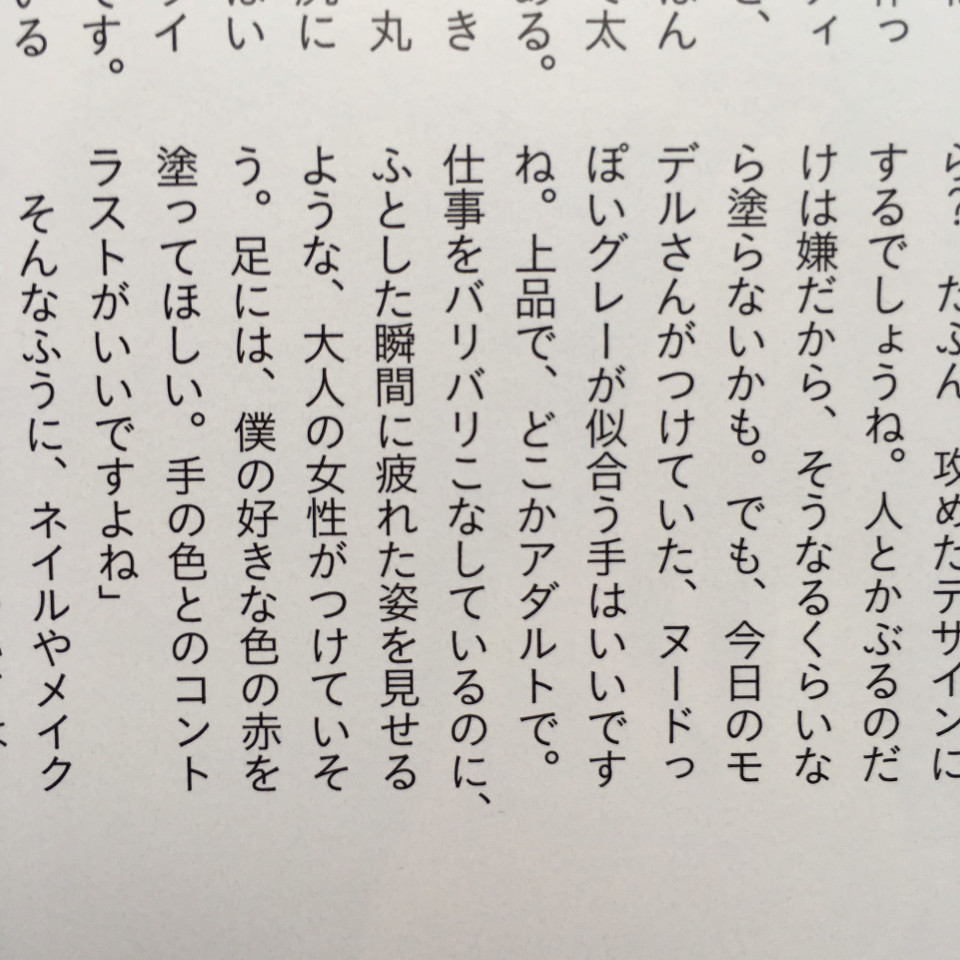 作っ
ティ
を、
ぽん
で太
ある。
き
丸
尻に
ぽい
ライ
です。
いる
ら? たぶん、攻めたデザインに
するでしょうね。人とかぶるのだ
けは嫌だから、そうなるくらいな
ら塗らないかも。でも、今日のモ
デルさんがつけていた、ヌードっ
ぽいグレーが似合う手はいいです
ね。上品で、どこかアダルトで。
仕事をバリバリこなしているのに、
ふとした瞬間に疲れた姿を見せる
ような、大人の女性がつけていそ
う。足には、僕の好きな色の赤を
塗ってほしい。手の色とのコント
ラストがいいですよね」
そんなふうに、ネイルやメイク